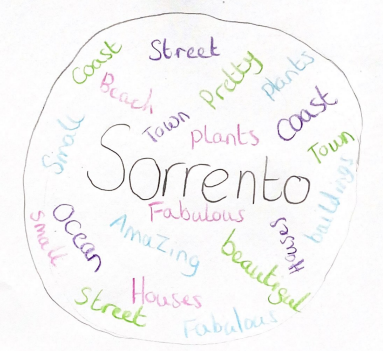 Street
Coast
Pretty
Plants
Beach
Coast
Town
plants
Town
Small
Sorrento
buildings
Fabulous
Ocean
Small
Amazing
Houses
beautiful
Houses
Street
Fabulous